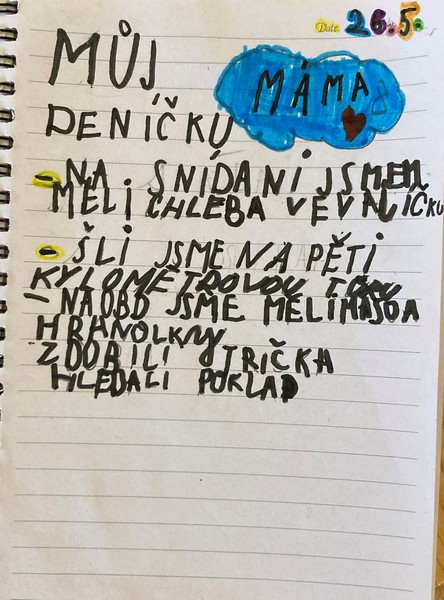 Date 26.5.
MŮJ
MÁMA
DENÍČKU
- NA SNÍDANI JSMEM
MĚLI CHLEBA VE VAJÍČKU
- ŠLI JSME NA PĚTI
KYLOMETROVOU TÚRU
- NA OBD JSME MĚLI MASO A
HRANOLKY
ZDOBILI TRIČKA
HLEDALI POKLAD